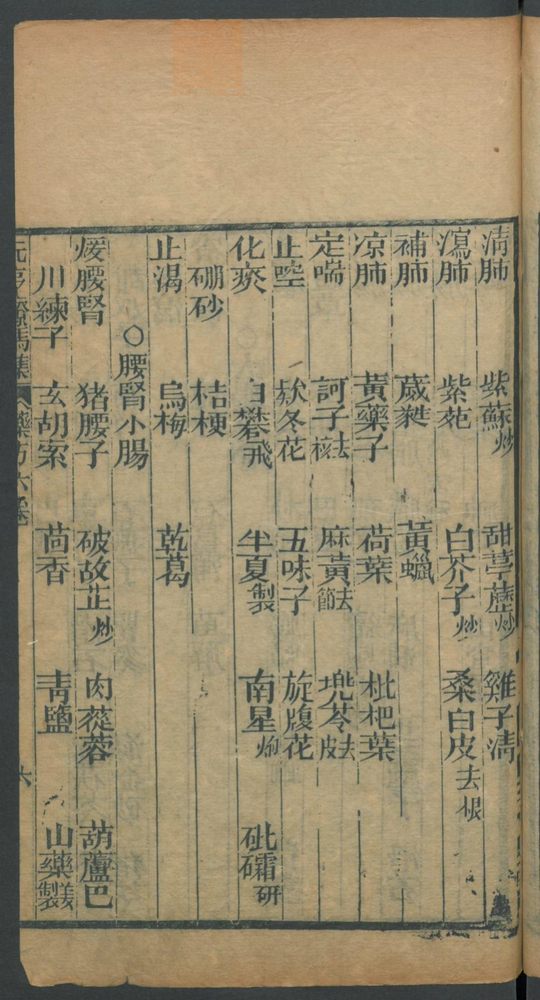 清肺 紫蘇炒 甜葶藶炒 雞子清
瀉肺 紫菀 白芥子炒 桑白皮去根
補肺 葳蕤 黃蠟
凉肺 黃藥子 荷葉 枇杷葉
定喘 訶子去核 麻黃去節 兜苓去皮
止𡁷 欵冬花 五味子 旋腹花
化痰 白礬飛 半夏製 南星炮 砒礵研
硼砂 桔梗
止渴 烏梅 乾葛
〇腰腎小腸
煖腰腎 猪腰子 破故芷炒 肉蓯蓉 葫蘆巴
川練子 玄胡索 茴香 青鹽 山藥
元亨療馬集 藥方 六卷 六